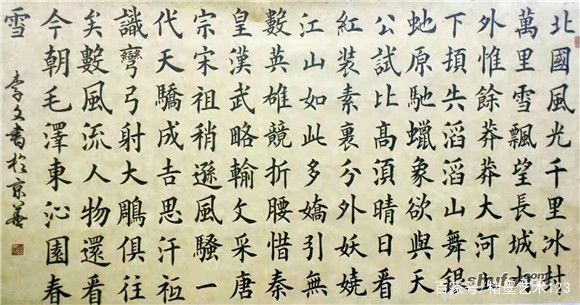 北國風光千里冰封
萬里雪飄望長城内
外惟餘莽莽大河上
下頓失滔滔山舞銀
虵原馳蠟象欲與天
公試比高須晴日看
紅裝素裏分外妖嬈
江山如此多嬌引無
數英雄競折腰惜秦
皇漢武略輸文采唐
宗宋祖稍遜風騷一
代天驕成吉思汗祗
識彎弓射大鵰俱往
矣數風流人物還看
今朝毛澤東沁園春
雪
李文書於京華
百家号/楷墨艺术123